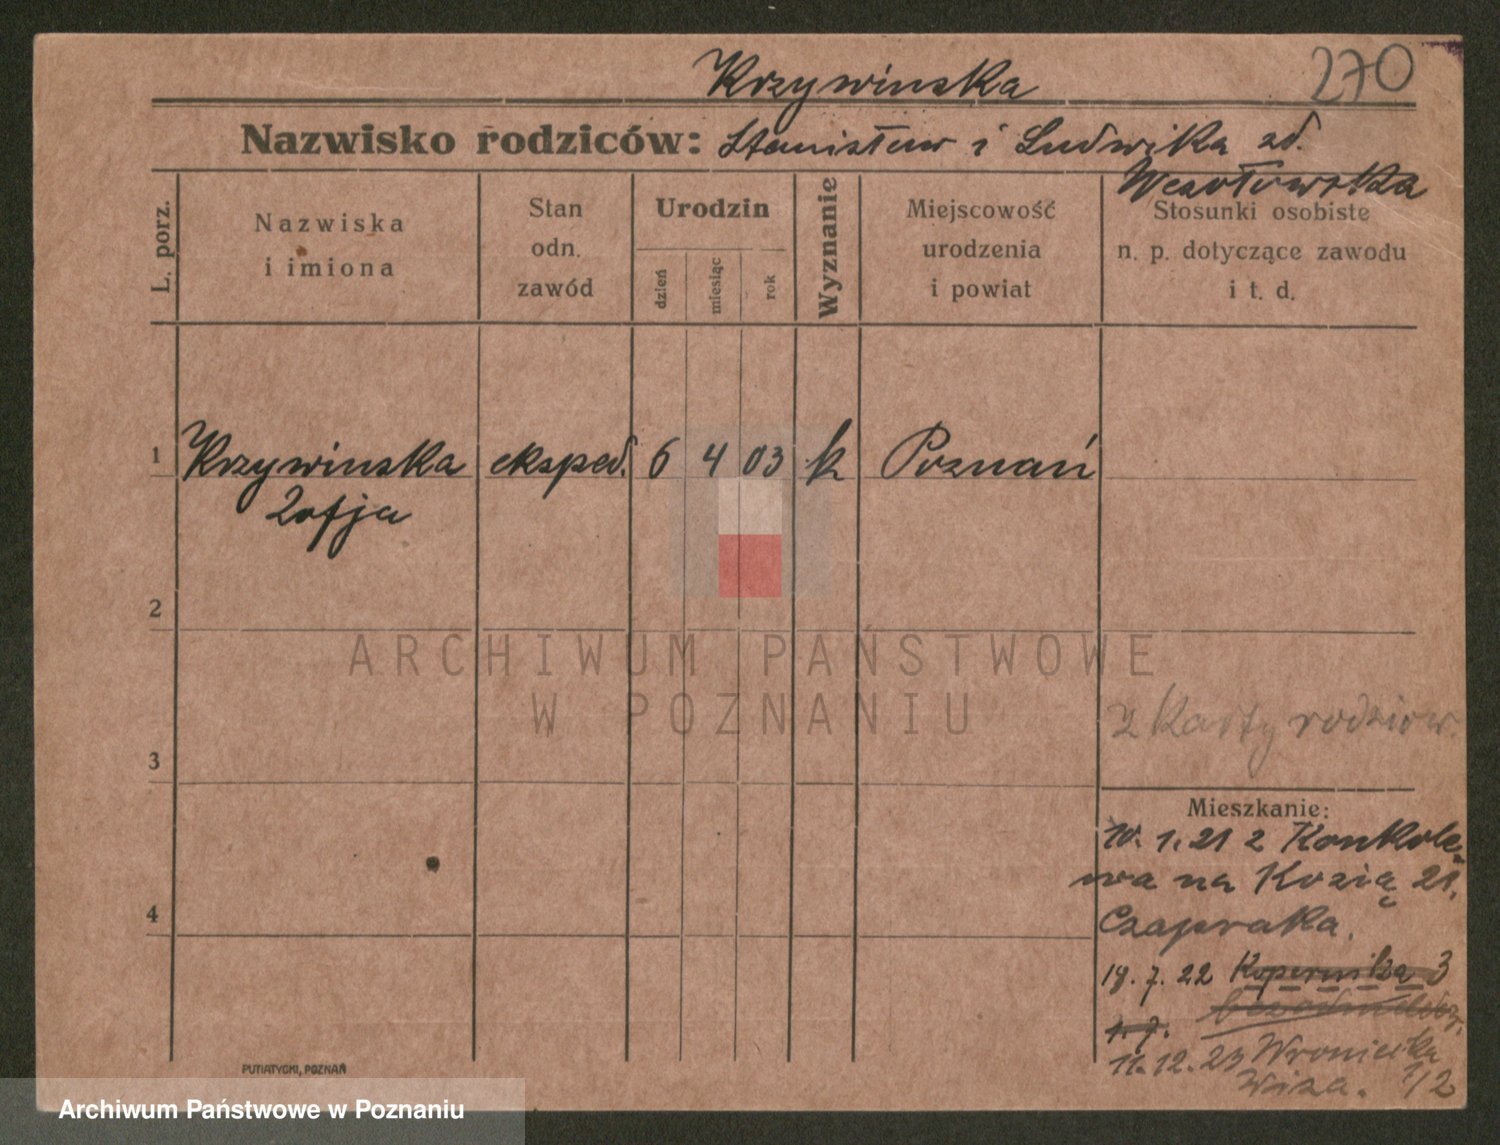 Krzywinska
270
Nazwisko rodziców: Stanisław i Ludwika zd.
Wesołowska
L. porz.
Nazwiska i imiona
Stan odn. zawód
Urodzin
dzień
miesiąc
rok
Wyznanie
Miejscowość urodzenia i powiat
Stosunki osobiste n. p. dotyczące zawodu i t. d.
1 Krzywinska eksped. 6 4 03 k Poznań
Zofja
2
ARCHIWUM PAŃSTWOWE
W POZNANIU
z Karty rodziców.
3
Mieszkanie:
10. 1. 21 z Konkole
wa na Kozią 21.
Czapraka.
4
19. 7. 22 Kopernika 3
11. 12. 23 Wroniecka
Wiza. 1/2
PUTIATYCKI, POZNAŃ
Archiwum Państwowe w Poznaniu